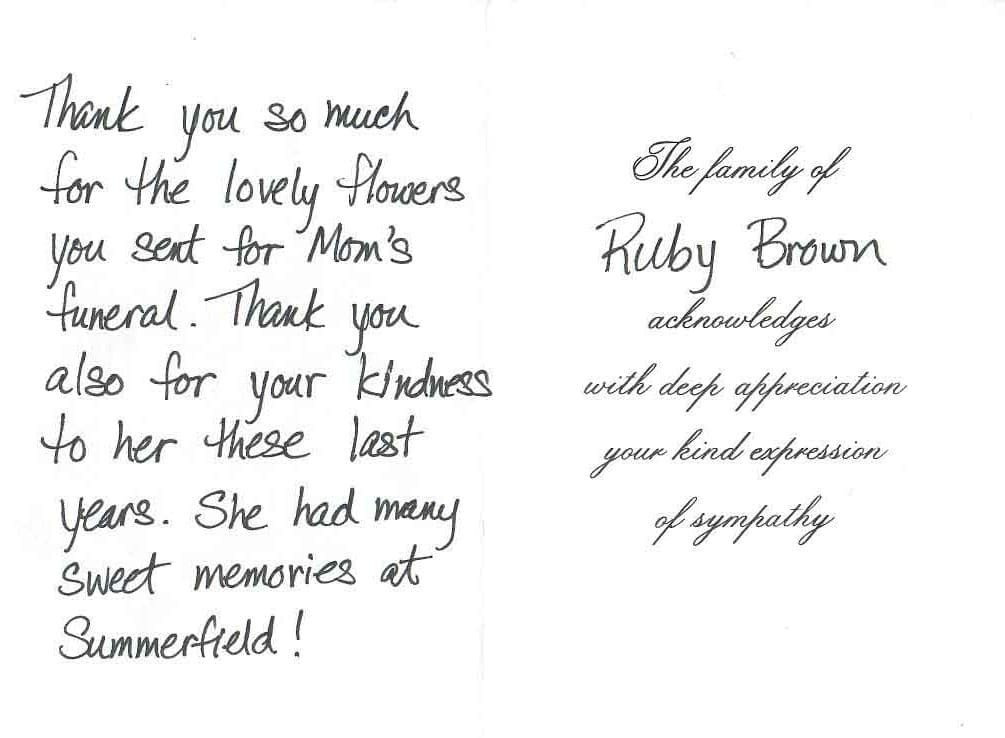 Thank you so much
for the lovely flowers
you sent for Mom's
funeral. Thank you
also for your kindness
to her these last
years. She had many
sweet memories at
Summerfield!
The family of
Ruby Brown
acknowledges
with deep appreciation
your kind expression
of sympathy